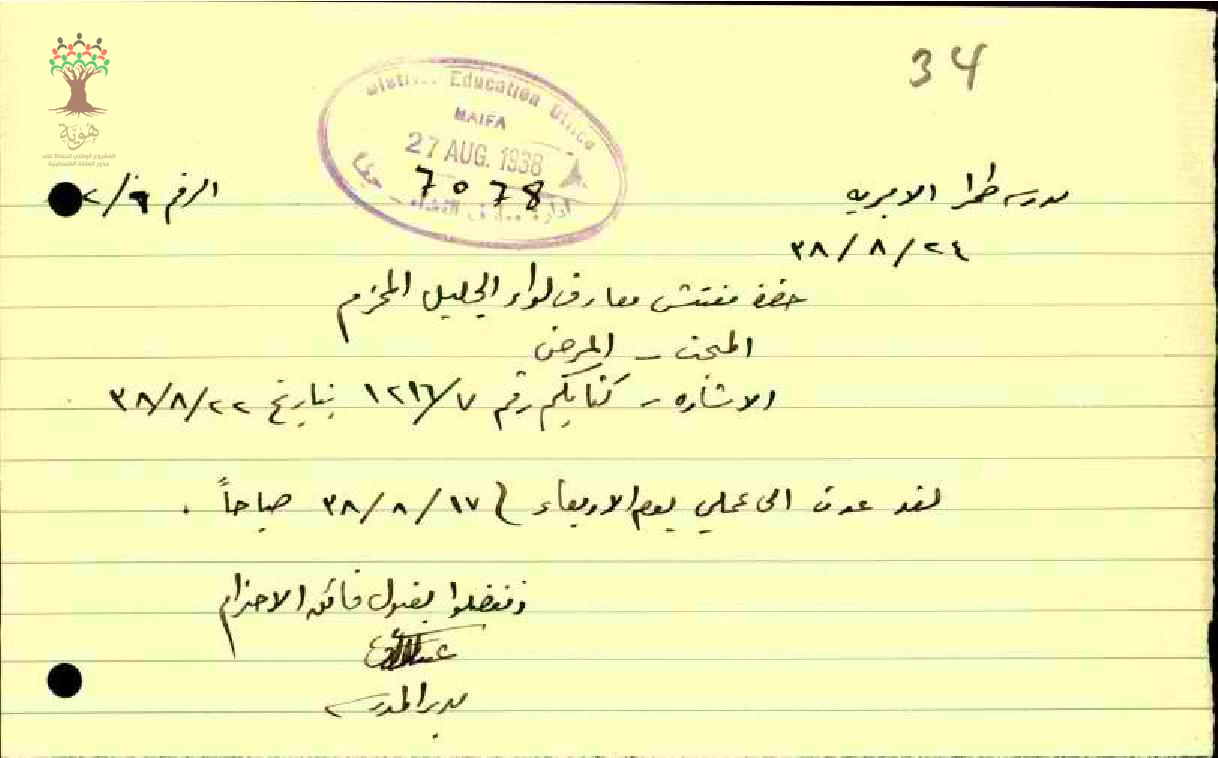 34
هوية
المشروع الوطني للحفاظ على
جذور العائلة الفلسطينية
District Education Office
HAIFA
27 AUG. 1938
7078
ادارة معارف اللواء - حيفا
مدرسه طمرا الاميريه
الرقم
٣٨/٨/٢٤
حضرة مفتش معارف لواء الجليل المحترم
المبحث - المرض
الاشاره - كتابكم رقم ١٢١٦/٧ بتاريخ ٣٨/٨/٢٢
لقد عدت الى عملي يوم الاربعاء في ٣٨/٨/١٧ صباحاً .
وتفضلوا بقبول فائق الاحترام
مدير المدرسه